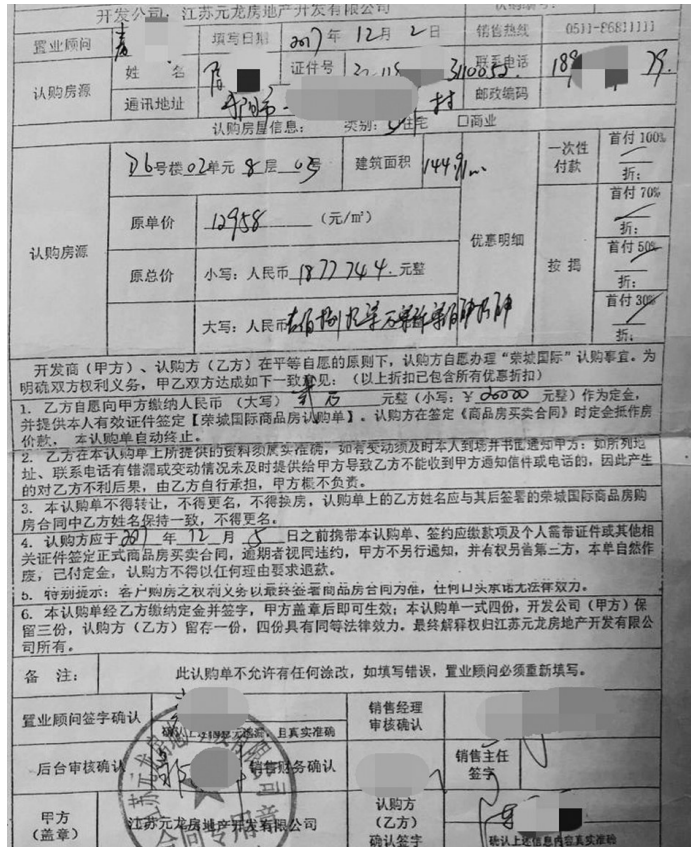 开发公司：江苏元龙房地产开发有限公司
置业顾问 填写日期 2017年 12月 2日 销售热线 0511-86811111
认购房源 姓 名 证件号 联系电话 189 79
通讯地址 丹阳市 村 邮政编码
认购房屋信息： 类别：住宅 □商业
认购房源 D6号楼02单元8层03号 建筑面积 144.91 优惠明细 一次性付款 首付100% 折：
按揭 首付70% 折：
原单价 12958 （元/㎡）
首付50% 折：
原总价 小写：人民币 1877744 元整
首付30% 折：
大写：人民币
开发商（甲方）、认购方（乙方）在平等自愿的原则下，认购方自愿办理“荣城国际”认购事宜。为
明确双方权利义务，甲乙双方达成如下一致意见：（以上折扣已包含所有优惠折扣）
1. 乙方自愿向甲方缴纳人民币（大写） 元整（小写：￥20000 元整）作为定金，
并提供本人有效证件签定【荣城国际商品房认购单】。认购方在签定《商品房买卖合同》时定金抵作房
价款，本认购单自动终止。
2. 乙方在本认购单上所提供的资料须属实准确，如有变动须及时本人到场并书面通知甲方；如所列地
址、联系电话有错漏或变动情况未及时提供给甲方导致乙方不能收到甲方通知信件或电话的，因此产生
的对乙方不利后果，由乙方自行承担，甲方概不负责。
3. 本认购单不得转让，不得更名，不得换房，认购单上的乙方姓名应与其后签署的荣城国际商品房购
房合同中乙方姓名保持一致，不得更名。
4. 认购方应于 2017年 12月 5日之前携带本认购单、签约应缴款项及个人需带证件或其他相
关证件签定正式商品房买卖合同，逾期者视同违约，甲方不另行通知，并有权另售第三方，本单自然作
废，已付定金，认购方不得以任何理由要求退款。
5. 特别提示：客户购房之权利义务以最终签署商品房合同为准，任何口头承诺无法律效力。
6. 本认购单经乙方缴纳定金并签字，甲方盖章后即可生效；本认购单一式四份，开发公司（甲方）保
留三份，认购方（乙方）留存一份，四份具有同等法律效力。最终解释权归江苏元龙房地产开发有限公
司所有。
备 注： 此认购单不允许有任何涂改，如填写错误，置业顾问必须重新填写。
置业顾问签字确认 销售经理审核确认
且真实准确
后台审核确认 销售财务确认 销售主任签字
甲方（盖章） 江苏元龙房地产开发有限公司 认购方（乙方）确认签字
确认上述信息内容真实准确
合同专用章